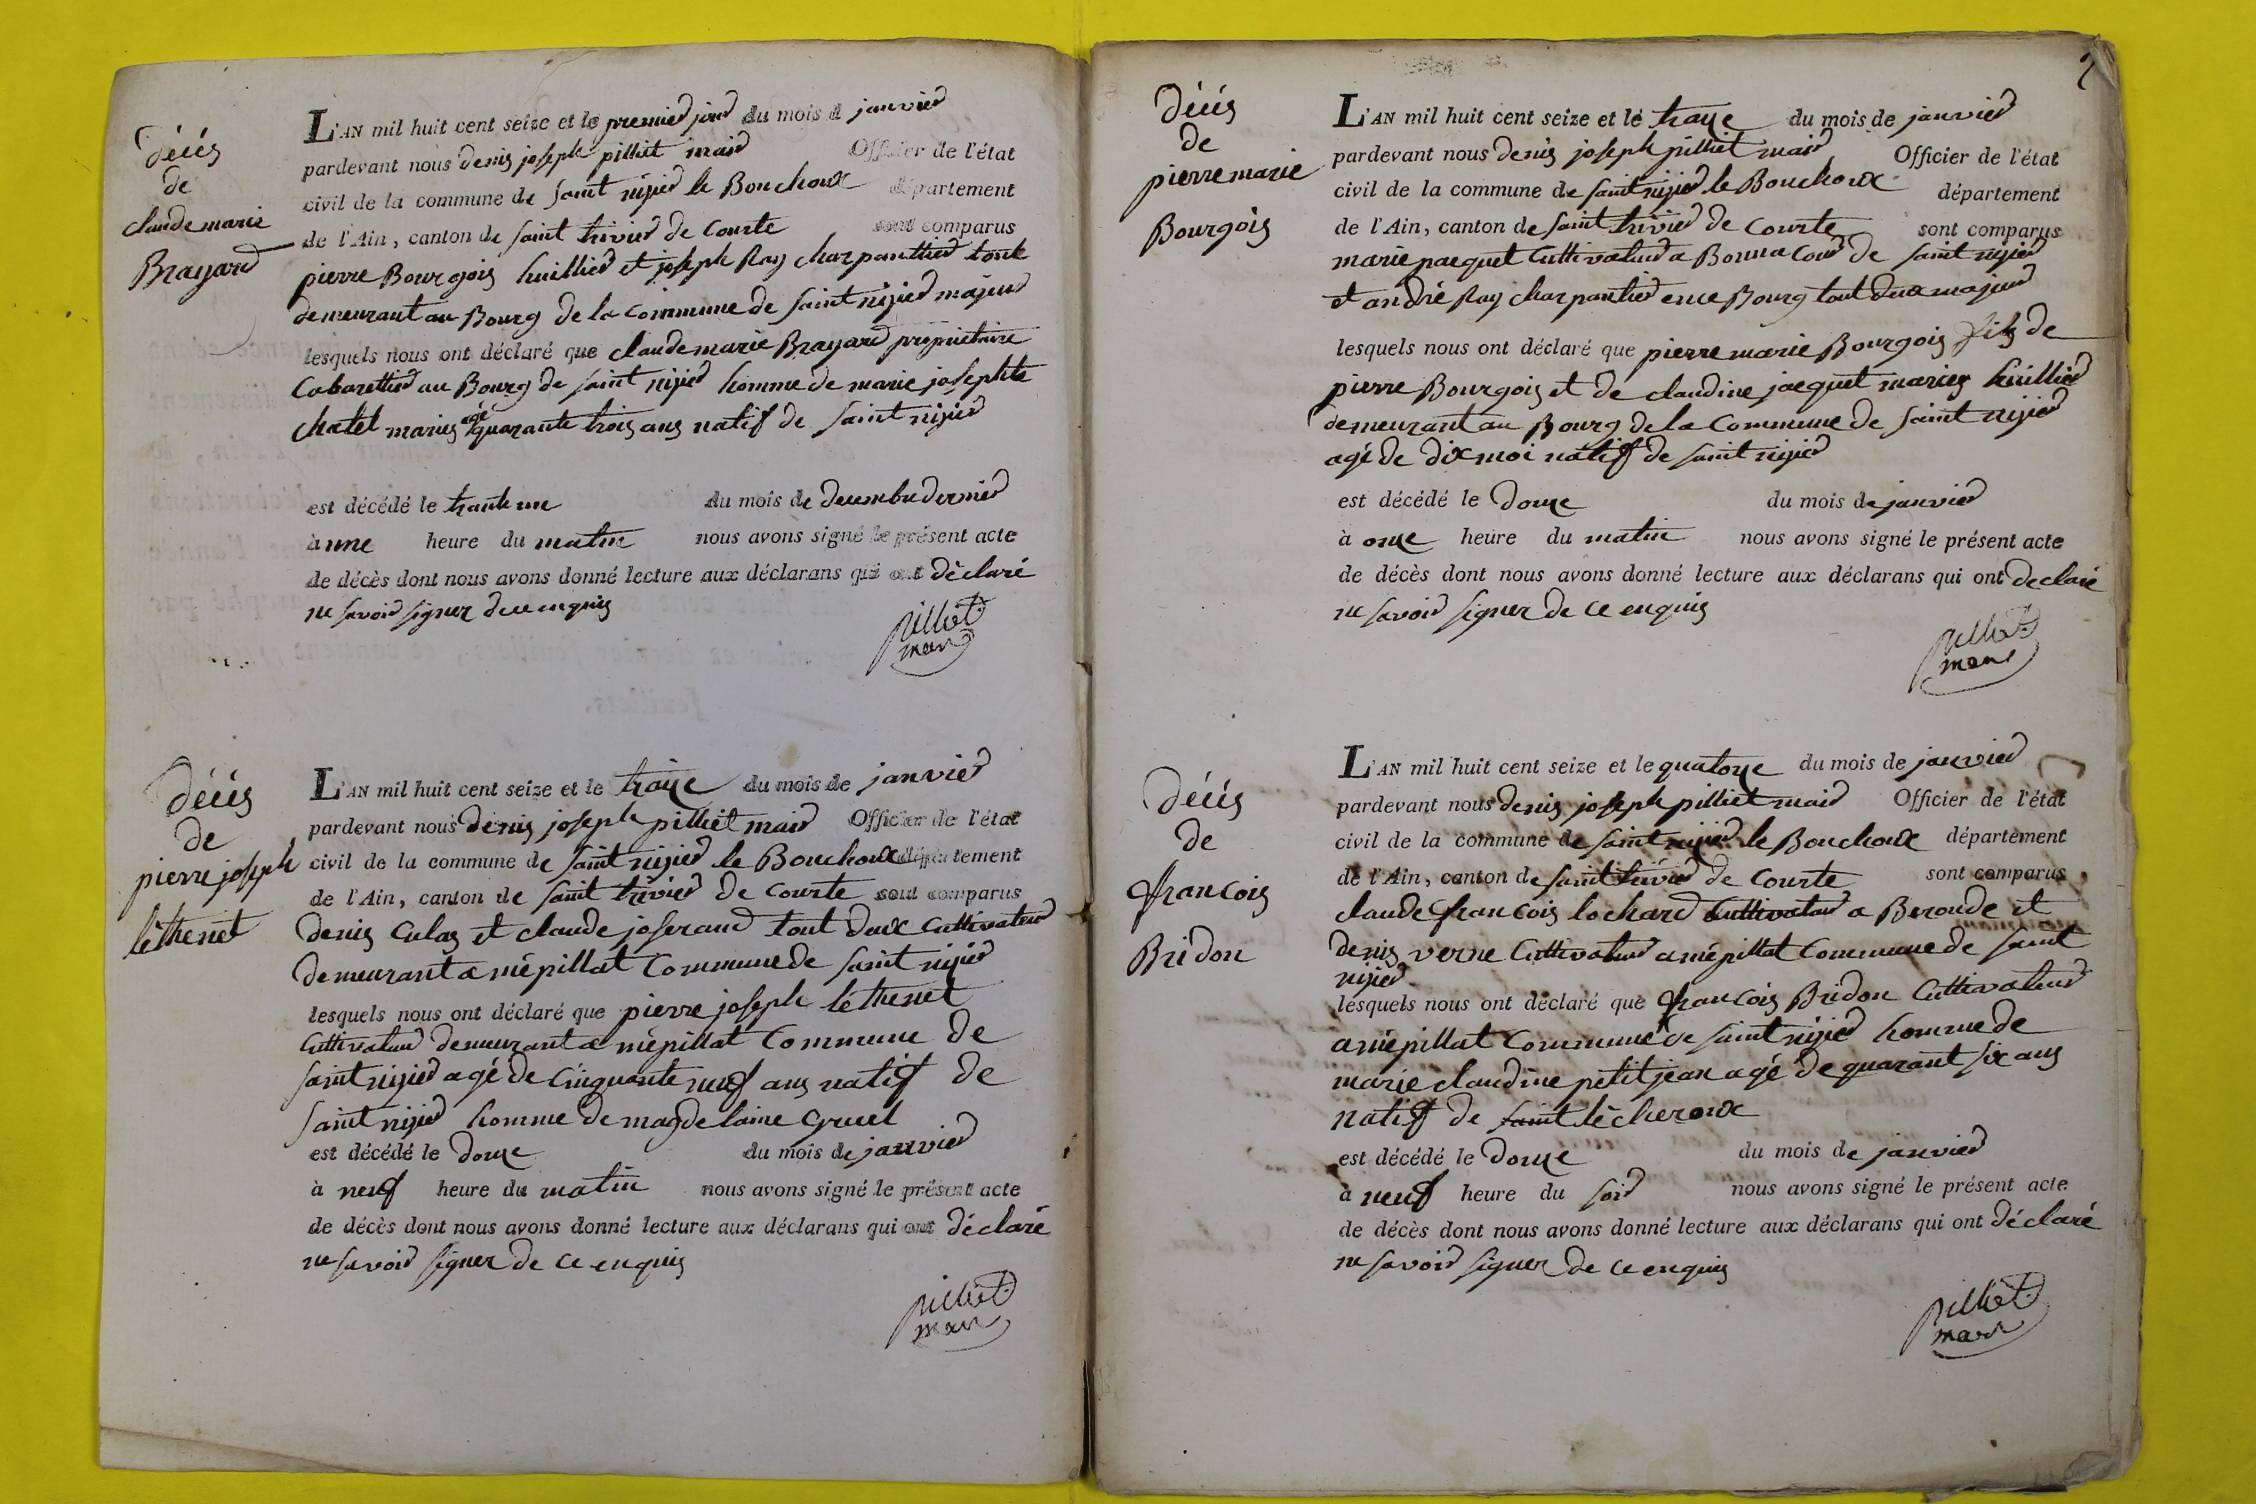 décès
de
claude marie
Brayard
L'AN mil huit cent seize et le premier jour du mois d janvier
pardevant nous denis joseph pilliet maire Officier de l'état
civil de la commune de saint nizier le Bouchoux département
de l'Ain, canton de saint trivier de Courte sont comparus
pierre Bourgois huillier et joseph Ray charpanttier tout
demeurant au Bourg de la commune de saint nizier majeur
lesquels nous ont déclaré que claude marie Brayard propriétaire
Cabarettier au Bourg de saint nizier homme de marie josephte
chatel maries agé quarante trois ans natif de saint nizier
est décédé le trante un du mois de decembre dernier
à une heure du matin nous avons signé le présent acte
de décès dont nous avons donné lecture aux déclarans qui ont déclaré
ne savoir signer de ce enquis
pilliet
maire
décès
de
pierre joseph
léthenet
L'AN mil huit cent seize et le traize du mois de janvier
pardevant nous denis joseph pilliet maire Officier de l'état
civil de la commune de saint nizier le Bouchoux département
de l'Ain, canton de saint trivier de Courte sont comparus
denis Culas et claude joserand tout deux Cuttivateur
demeurant a mépillat Commune de saint nizier
lesquels nous ont déclaré que pierre joseph léthenet
Cuttivateur demeurant a mépillat Commune de
saint nizier agé de Cinquante neuf ans natif de
saint nizier homme de magdelaine Gruel
est décédé le douze du mois de janvier
à neuf heure du matin nous avons signé le présent acte
de décès dont nous avons donné lecture aux déclarans qui ont déclaré
ne savoir signer de ce enquis
pilliet
maire
2
décès
de
pierre marie
Bourgois
L'AN mil huit cent seize et le traize du mois de janvier
pardevant nous denis joseph pilliet maire Officier de l'état
civil de la commune de saint nizier le Bouchoux département
de l'Ain, canton de saint trivier de Courte sont comparus
marie pacquet Cuttivateur a Bonna Cour de saint nizier
et andré Ray charpantier ence Bourg tout deux majeur
lesquels nous ont déclaré que pierre marie Bourgois fils de
pierre Bourgois et de claudine jacquet maries huillier
demeurant au Bourg de la Commune de saint nizier
agé de dix moi natif de saint nizier
est décédé le douze du mois de janvier
à onze heure du matin nous avons signé le présent acte
de décès dont nous avons donné lecture aux déclarans qui ont declaré
ne savoir signer de ce enquis
pilliet
maire
décès
de
francois
Bridon
L'AN mil huit cent seize et le quatorze du mois de janvier
pardevant nous denis joseph pilliet maire Officier de l'état
civil de la commune de saint nizier le Bouchoux département
de l'Ain, canton de saint trivier de Courte sont comparus
claude francois lochard Cuttivateur a Beroude et
denis verne Cuttivateur a mépillat Commune de saint
nizier
lesquels nous ont déclaré que francois Bridon Cuttivateur
a mépillat Commune de saint nizier homme de
marie claudine petitjean agé de quarant six ans
natif de saint lécheroux
est décédé le douze du mois de janvier
à neuf heure du soir nous avons signé le présent acte
de décès dont nous avons donné lecture aux déclarans qui ont déclaré
ne savoir signer de ce enquis
pilliet
maire